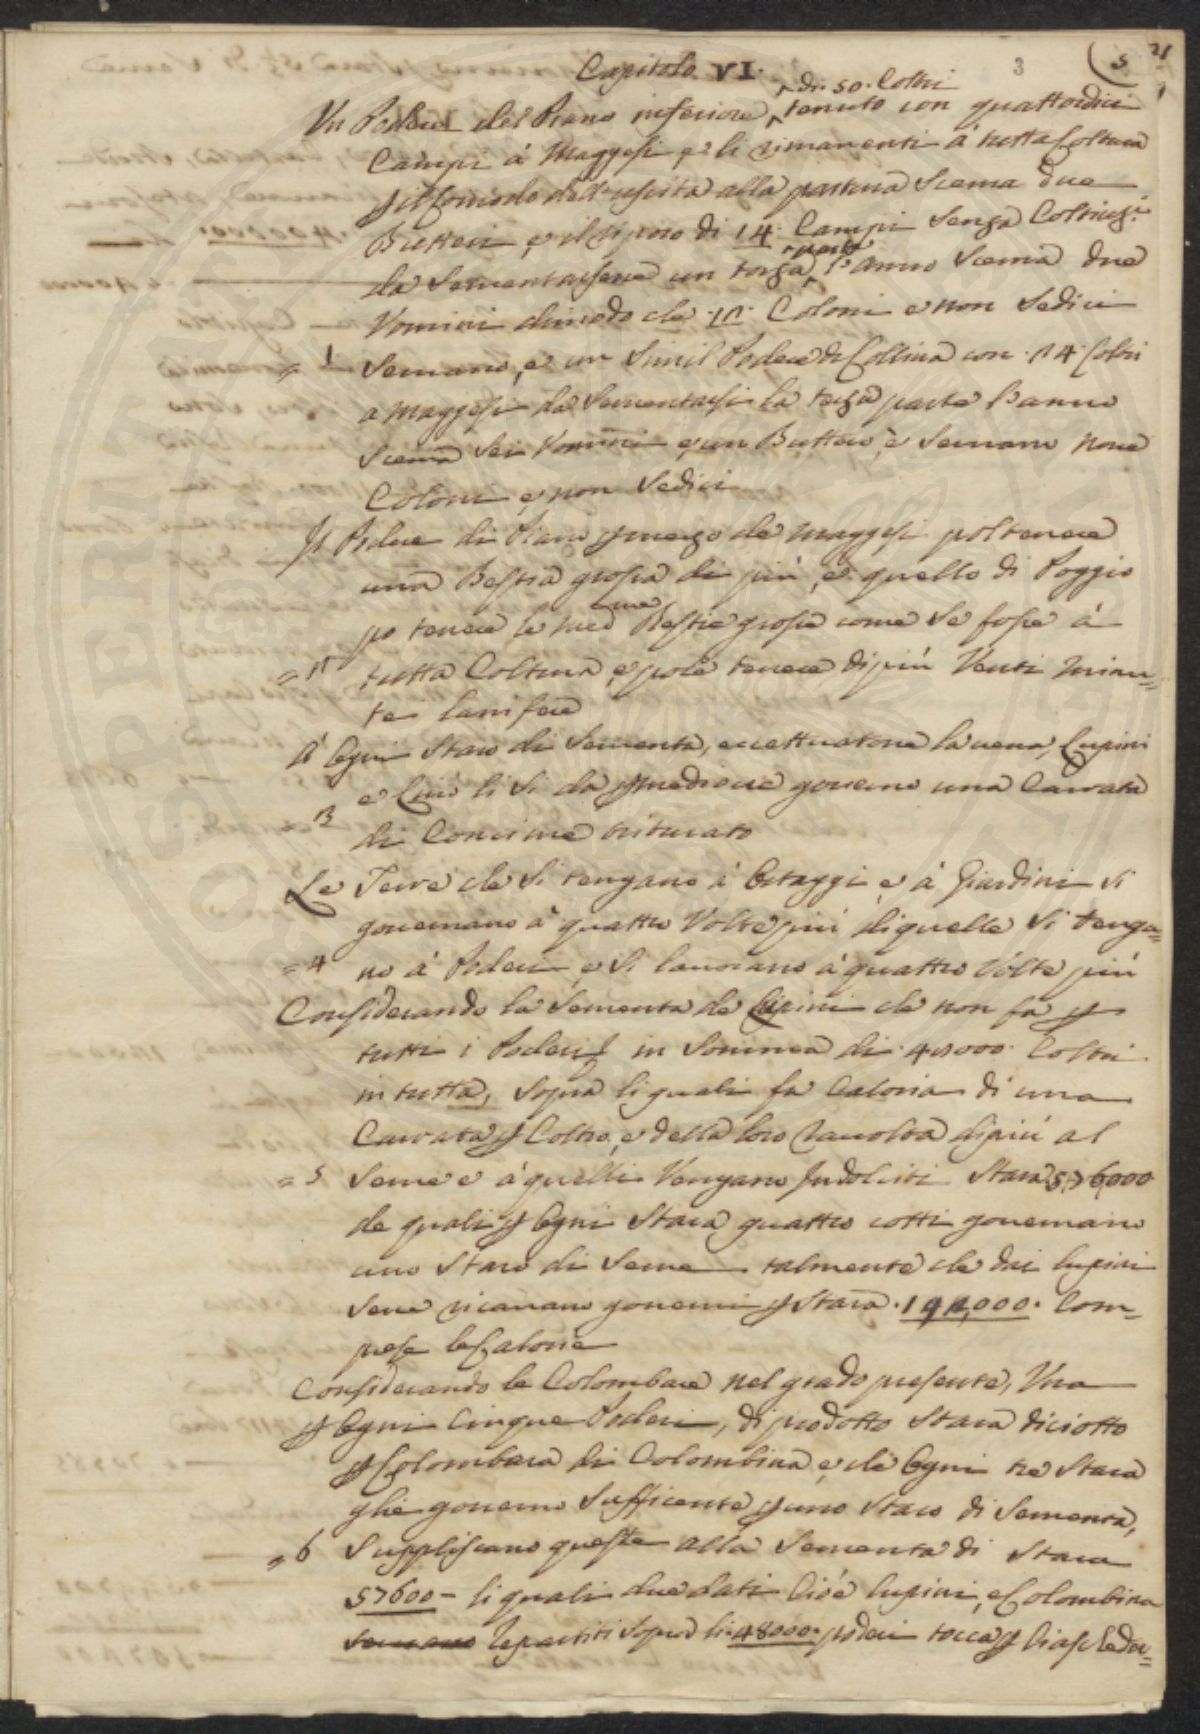 3 (5 21
Capitolo VI.
di 50. Coltri
Un Podere del Piano inferiore, tenuto con quattordici
Campi à Maggesi, e li rimanenti à tutta Coltura
p il Comodo dell'uscita alla pastura Scema due
e il riposo di 14. Campi Senza
da un terza parte l'anno Scema due
Uomini dimodo che Coloni e non Sedici
= 1 Servano, e un Simil Podere di Collina con 14 Coltri
a Maggesi da Sementarsi la terza parte l'anno
Scema Sei Uomini e un e Servano Nove
Coloni e non Sedici
Il Podere di Piano p mezzo de Maggesi pol tenere
una Bestia grossa di più, e quello di Poggio
po tenere le med.me Bestie grosse come Se fosse à
= tutta Coltura, e pole tenere di più Venti minu=
te lanifere
A Ogni Staro di Sementa, eccettuatone la vena, Lupini
e Lino li Si da p mediocre governo una Carrata
= 3 di Concime triturato
Le Terre che Si tengano à Ortaggi e à Giardini Si
governano à quattro Volte più di quelle Si tenga=
= 4 no à Poderi, e Si lavorano à quattro Volte più
Considerando la Sementa de Lupini che non fà p
tutti i Poderi in Somma di Coltri
in tutta, Sopra li quali fa Caloria di una
Carrata p Coltro, e della loro raccolta di più al
= 5 Seme e à quelli Vengano Indolciti Stara 576000
de quali p Ogni Stara quattro cotti governano
uno Staro di Seme talmente che dai lupini
Sene ricavano governi p Stara 192,000. Com=
prese le Calorie
Considerando le Colombare nel grado presente, Una
p Ogni Cinque Poderi, di prodotto Stara diciotto
p Colombara di Colombina e che Ogni tre Stara
gl'è governo Sufficente p uno Staro di Sementa,
= 6 Suppliscano queste alla Sementa di Stara
57600 - li quali due dati Cioè lupini, e Colombina
repartiti Sopra li 48000. poderi tocca p Ciaschedu=